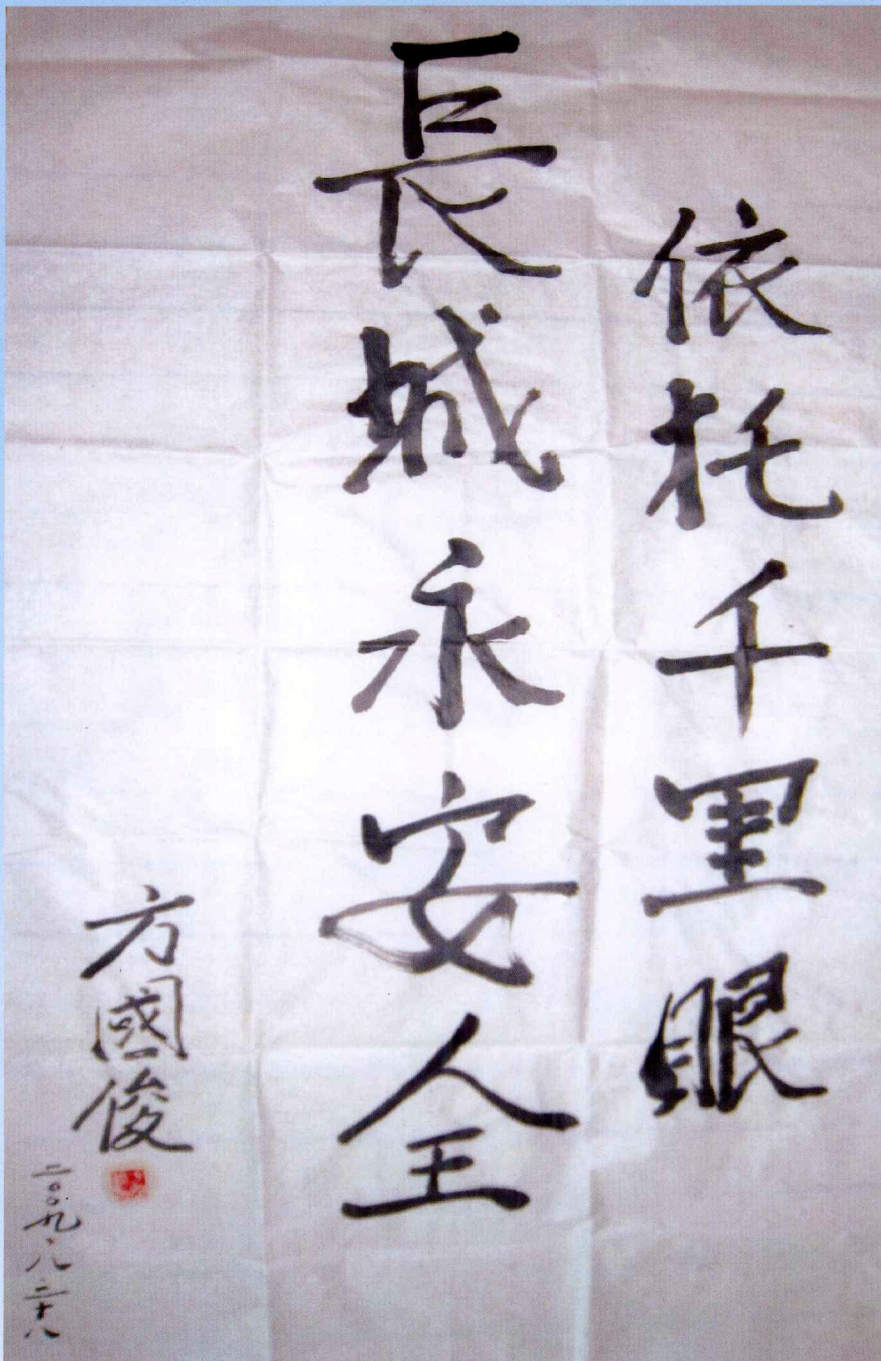 依托千里眼
長城永安全
方國俊
二〇〇九、八、二十八